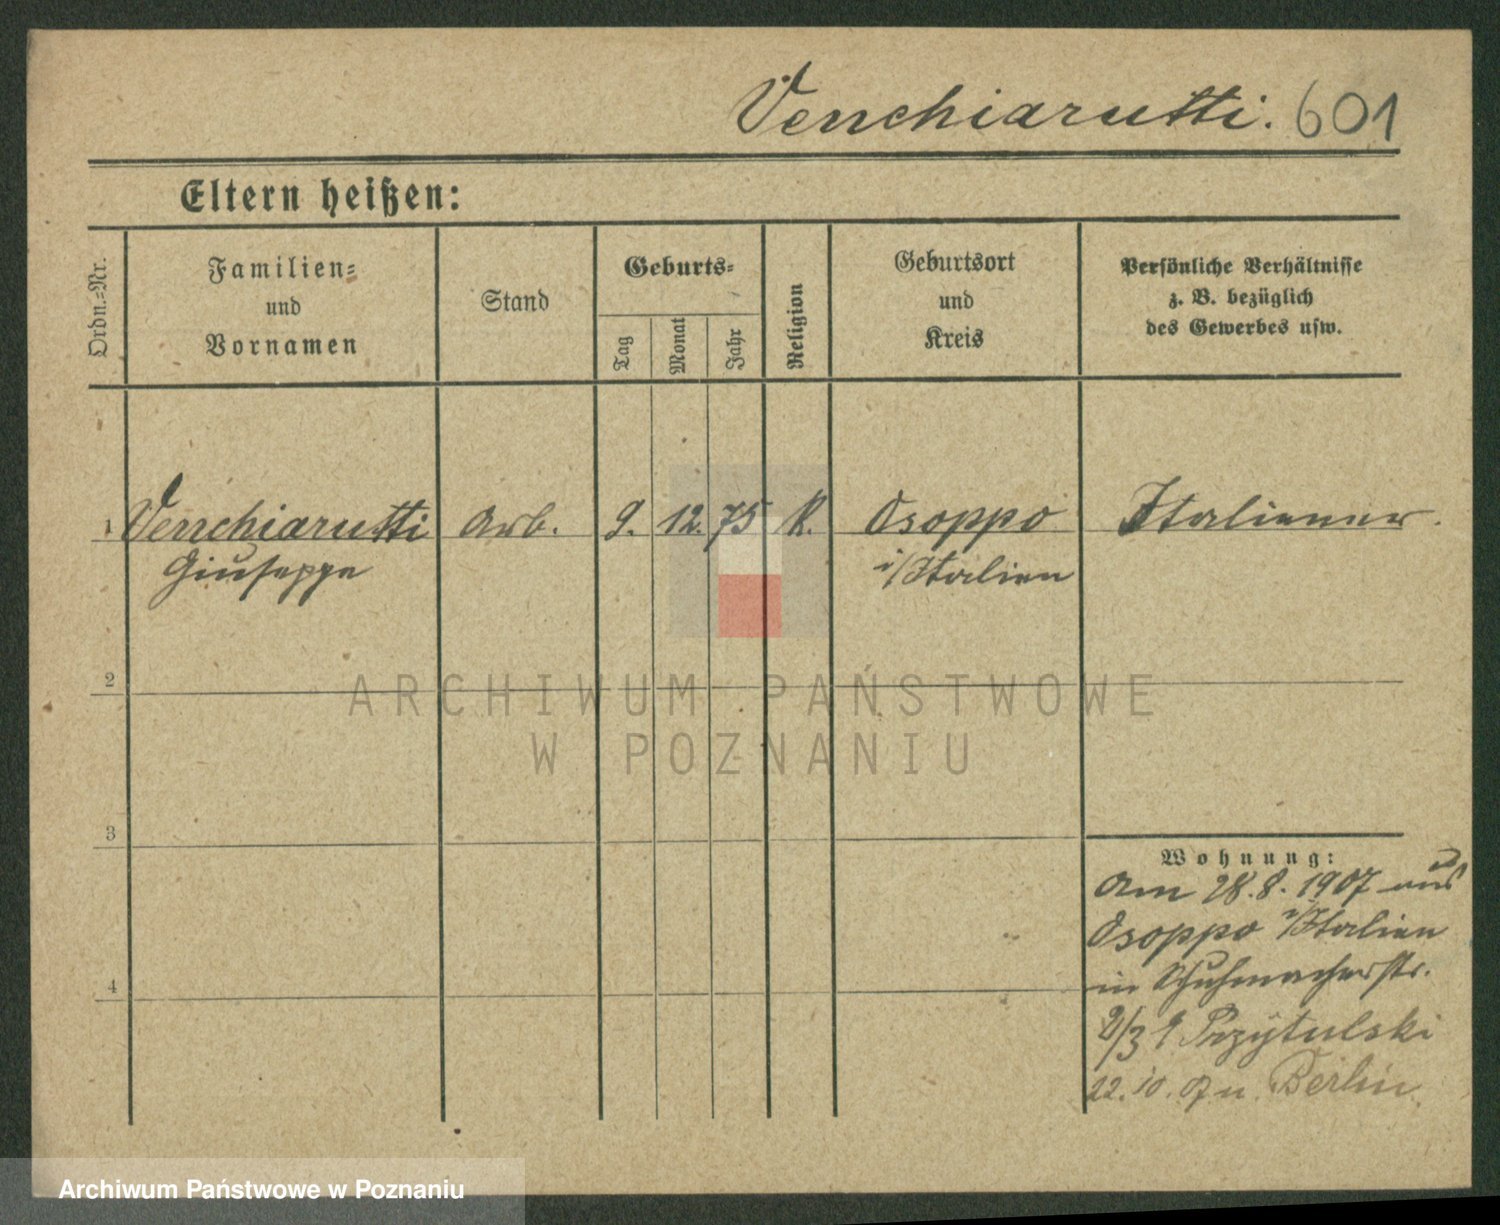 Venchiarutti. 601
Eltern heißen:
Ordn.=Nr.
Familien=
und
Vornamen
Stand
Geburts=
Tag
Monat
Jahr
Religion
Geburtsort
und
Kreis
Persönliche Verhältnisse
z. B. bezüglich
des Gewerbes usw.
1 Venchiarutti Arb. 9. 12. 75 K. Osoppo Italiener.
Giuseppe i/Italien
2
ARCHIWUM PAŃSTWOWE
W POZNANIU
3
Wohnung:
Am 28.8.1907 aus
Osoppo i/Italien
in Schuhmacherstr.
2/3 Przytulski
22.10.07 n. Berlin
4
Archiwum Państwowe w Poznaniu